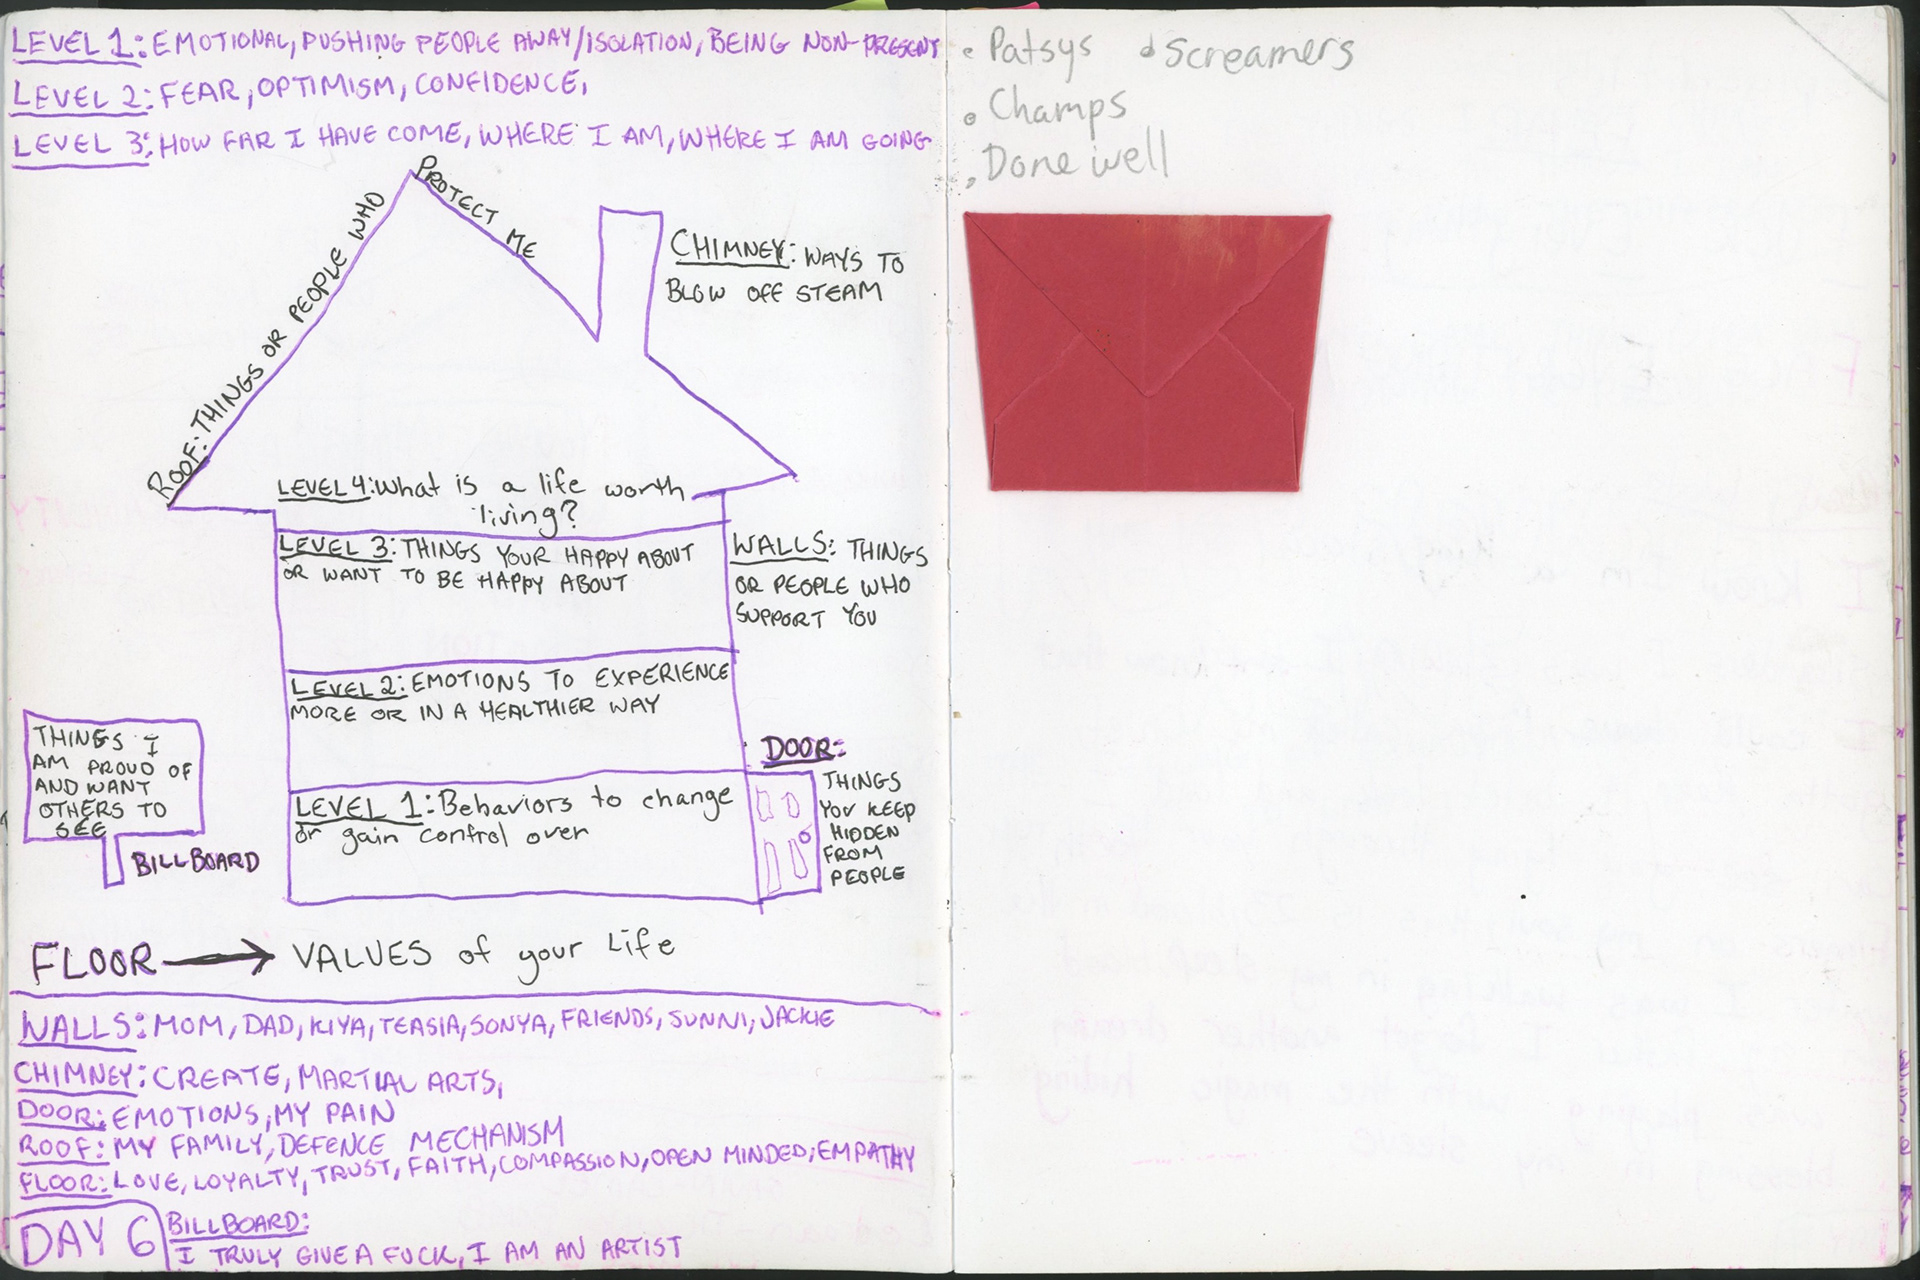 LEVEL 1: EMOTIONAL, PUSHING PEOPLE AWAY/ISOLATION, BEING NON-PRESENT
LEVEL 2: FEAR, OPTIMISM, CONFIDENCE,
LEVEL 3: HOW FAR I HAVE COME, WHERE I AM, WHERE I AM GOING
ROOF: THINGS OR PEOPLE WHO
PROTECT ME
CHIMNEY: WAYS TO
BLOW OFF STEAM
LEVEL 4: What is a life worth
living?
LEVEL 3: THINGS YOUR HAPPY ABOUT
OR WANT TO BE HAPPY ABOUT
WALLS: THINGS
OR PEOPLE WHO
SUPPORT YOU
LEVEL 2: EMOTIONS TO EXPERIENCE
MORE OR IN A HEALTHIER WAY
THINGS I
AM PROUD OF
AND WANT
OTHERS TO
SEE
BILLBOARD
LEVEL 1: Behaviors to change
or gain control over
DOOR:
THINGS
YOU KEEP
HIDDEN
FROM
PEOPLE
FLOOR → VALUES of your Life
WALLS: MOM, DAD, KIYA, TEASIA, SONYA, FRIENDS, SUNNI, JACKIE
CHIMNEY: CREATE, MARTIAL ARTS,
DOOR: EMOTIONS, MY PAIN
ROOF: MY FAMILY, DEFENCE MECHANISM
FLOOR: LOVE, LOYALTY, TRUST, FAITH, COMPASSION, OPEN MINDED, EMPATHY
DAY 6
BILLBOARD:
I TRULY GIVE A FUCK, I AM AN ARTIST
• Patsys • Screamers
• Champs
• Done well